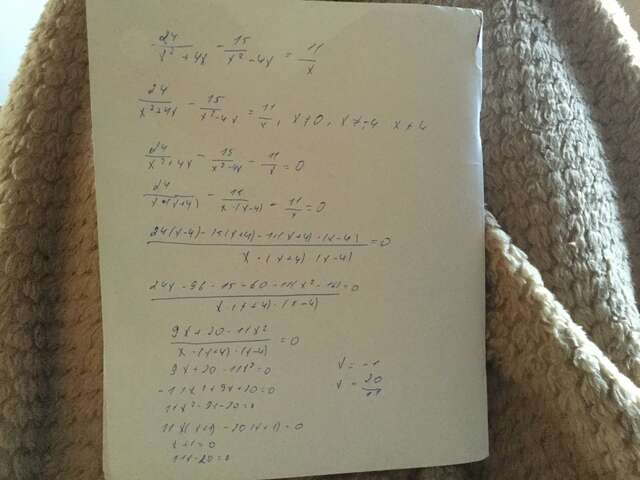 24/(x²+4x) - 15/(x²-4x) = 11/x
24/(x²+4x) - 15/(x²-4x) = 11/x, x≠0, x≠-4 x≠4
24/(x²+4x) - 15/(x²-4x) - 11/x = 0
24/(x·(x+4)) - 15/(x·(x-4)) - 11/x = 0
(24(x-4)-15(x+4)-11(x+4)·(x-4))/(x·(x+4)·(x-4)) = 0
(24x-96-15-60-11(x²-16))/(x·(x+4)·(x-4)) = 0
(9x+20-11x²)/(x·(x+4)·(x-4)) = 0
9x+20-11x²=0
x = -1
-11x²+9x+20=0
x = 20/11
11x²-9x-20=0
11x(x+1)-20(x+1)=0
x+1=0
11x-20=0